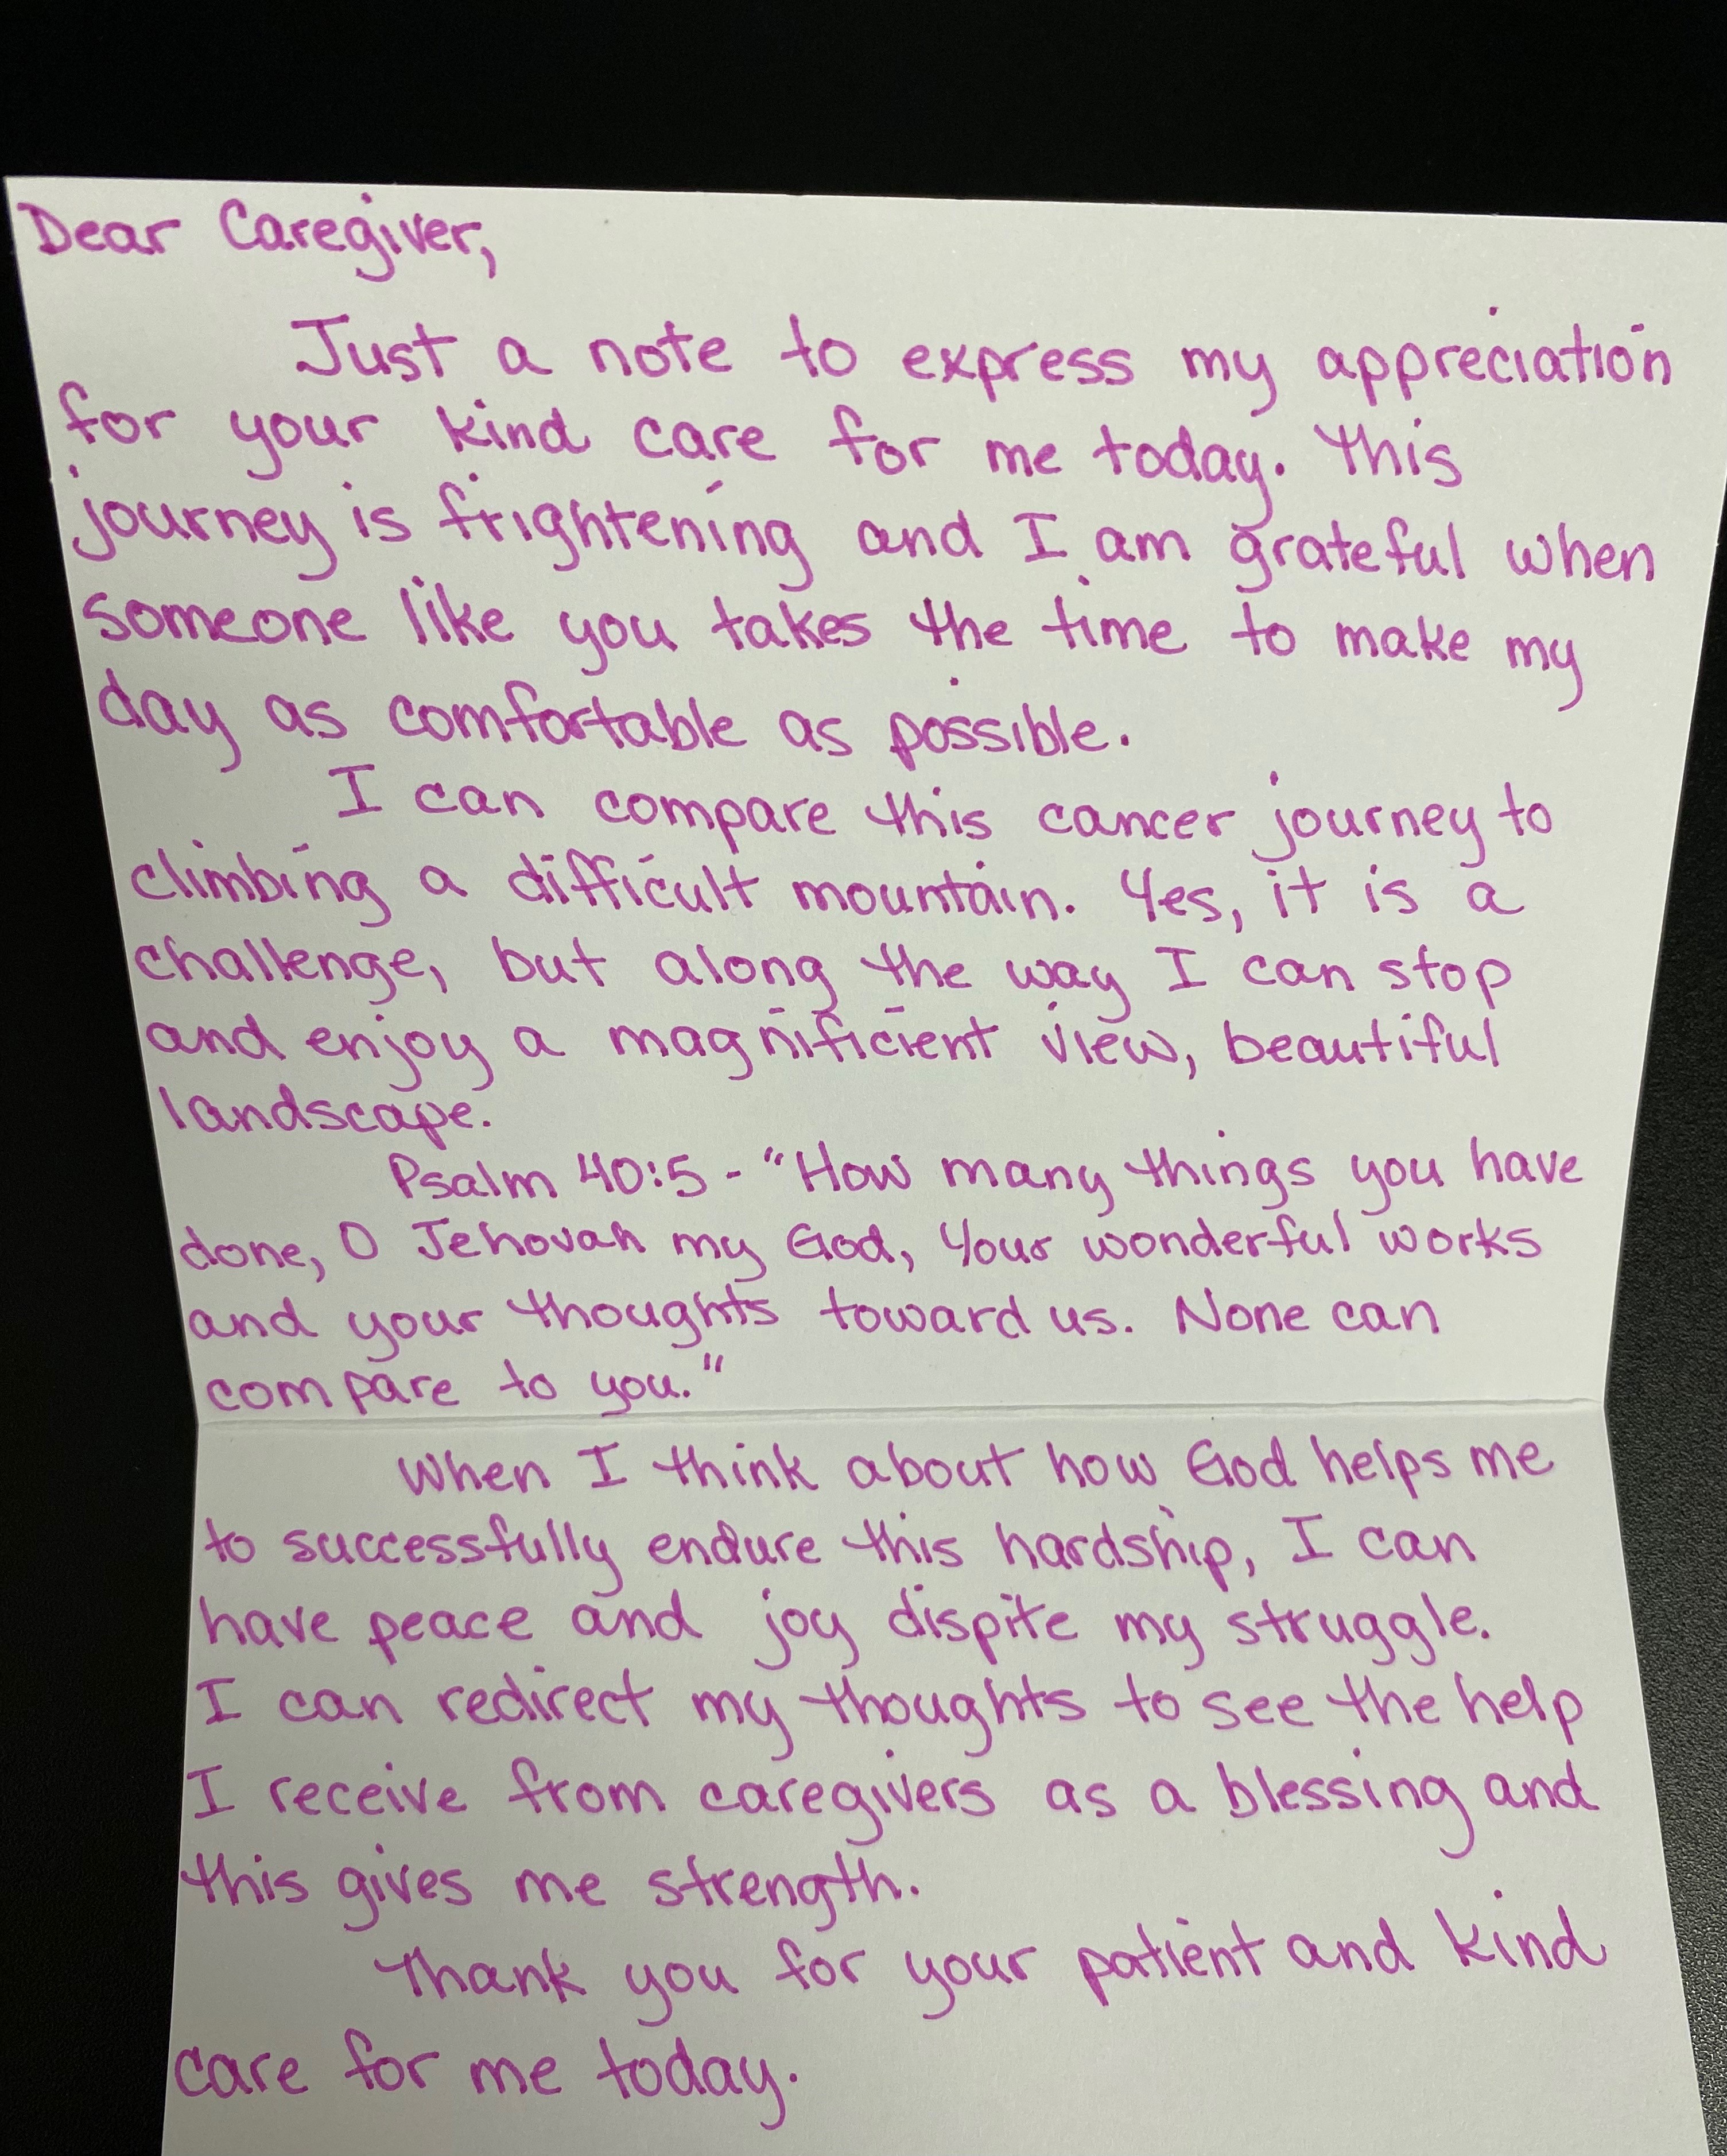 Dear Caregiver,
Just a note to express my appreciation
for your kind care for me today. This
journey is frightening and I am grateful when
someone like you takes the time to make my
day as comfortable as possible.
I can compare this cancer journey to
climbing a difficult mountain. Yes, it is a
challenge, but along the way I can stop
and enjoy a magnificient view, beautiful
landscape.
Psalm 40:5 - "How many things you have
done, O Jehovah my God, Your wonderful works
and your thoughts toward us. None can
compare to you."
When I think about how God helps me
to successfully endure this hardship, I can
have peace and joy dispite my struggle.
I can redirect my thoughts to see the help
I receive from caregivers as a blessing and
this gives me strength.
Thank you for your patient and kind
care for me today.